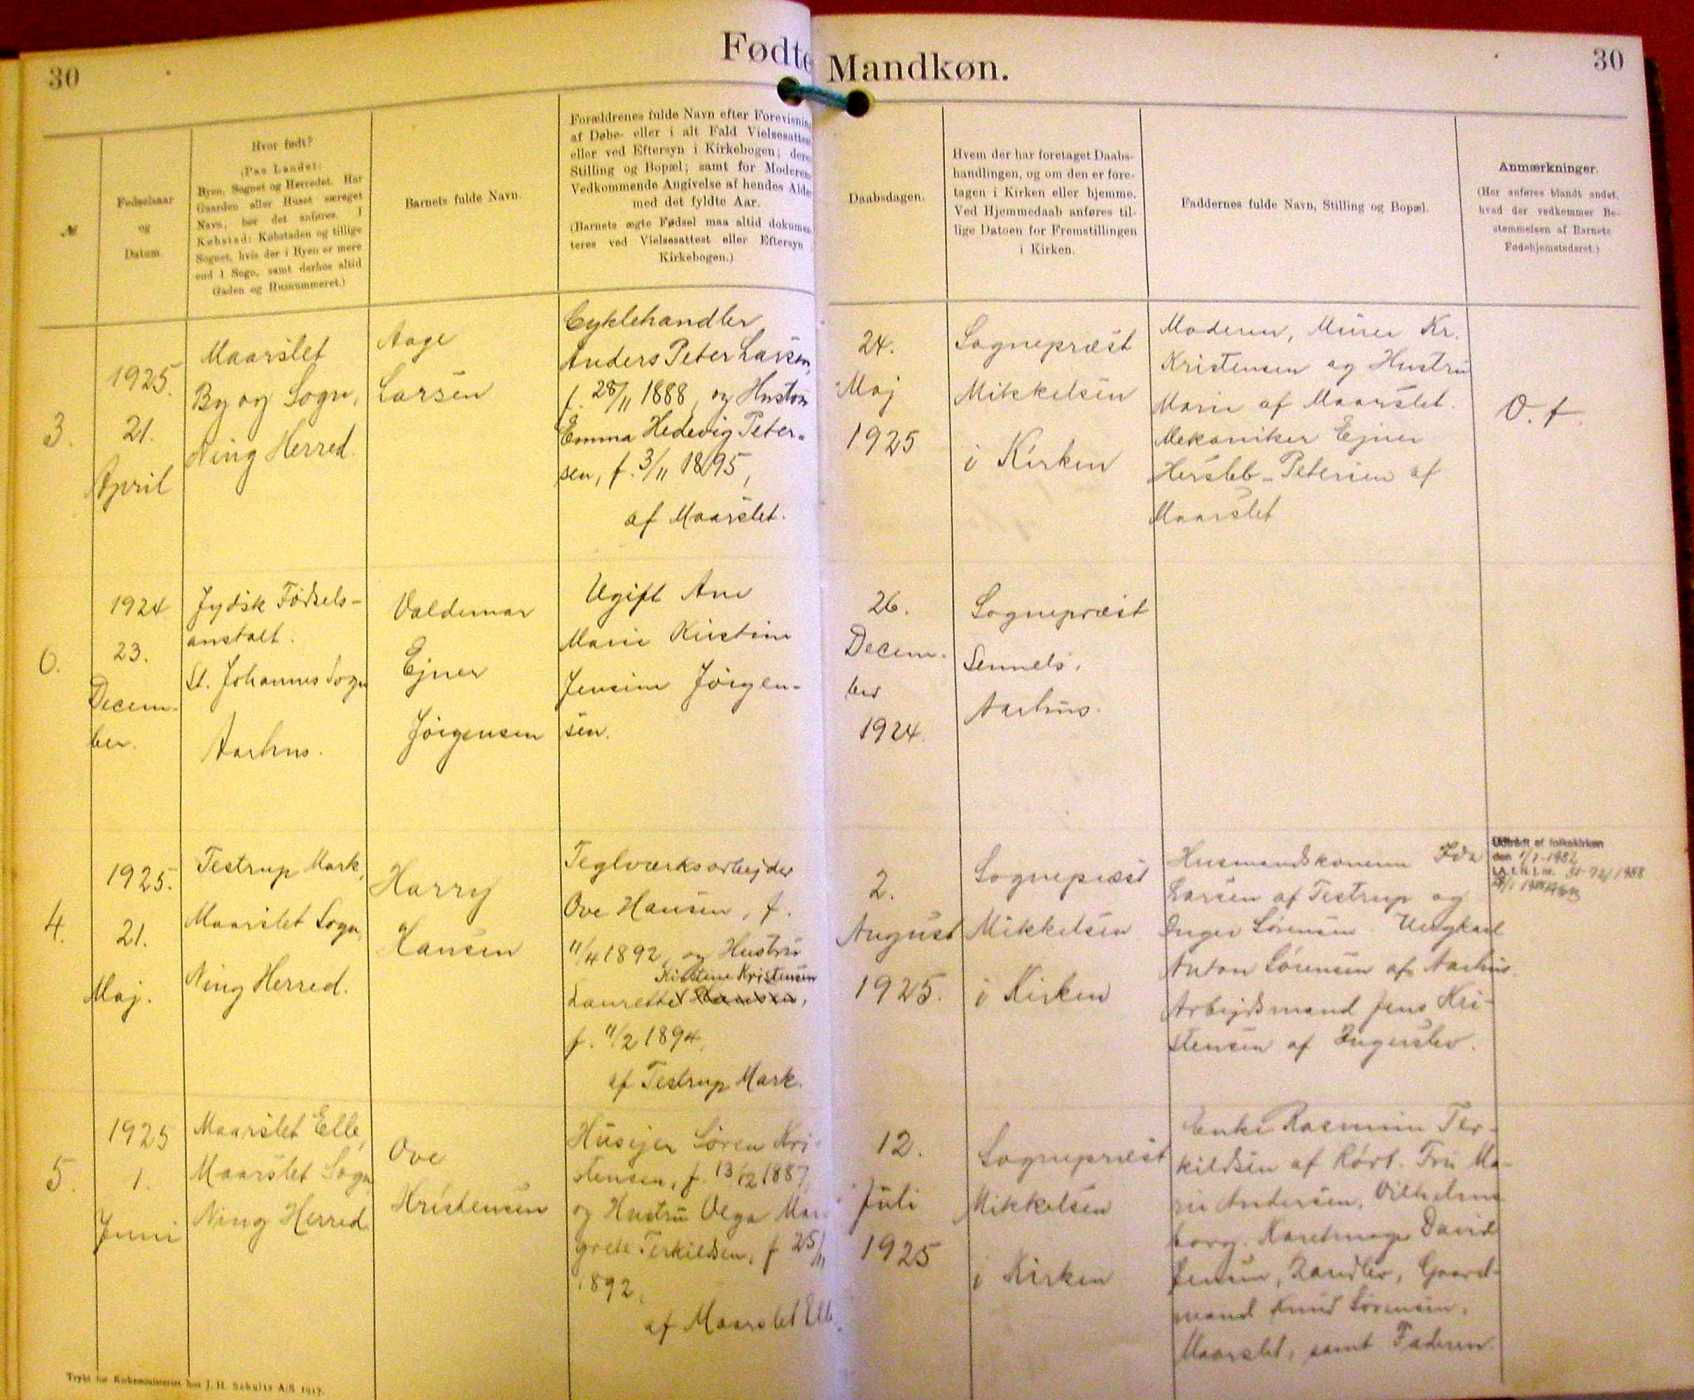 30
Fødte
Mandkøn.
30
№
Fødselsaar
og
Datum.
Hvor født?
(Paa Landet:
Byen, Sognet og Herredet. Har
Gaarden eller Huset særeget
Navn, bør det anføres. I
Købstad: Købstaden og tillige
Sognet, hvis der i Byen er mere
end 1 Sogn, samt derhos altid
Gaden og Husnummeret.)
Barnets fulde Navn.
Forældrenes fulde Navn efter Forevisning
af Døbe- eller i alt Fald Vielsesattest
eller ved Eftersyn i Kirkebogen; deres
Stilling og Bopæl; samt for Moderens
Vedkommende Angivelse af hendes Alder
med det fyldte Aar.
(Barnets ægte Fødsel maa altid dokumen-
teres ved Vielsesattest eller Eftersyn
Kirkebogen.)
Daabsdagen.
Hvem der har foretaget Daabs-
handlingen, og om den er fore-
tagen i Kirken eller hjemme.
Ved Hjemmedaab anføres til-
lige Datoen for Fremstillingen
i Kirken.
Faddernes fulde Navn, Stilling og Bopæl.
Anmærkninger.
(Her anføres blandt andet,
hvad der vedkommer Be-
stemmelsen af Barnets
Fødehjemstedsret.)
3.
1925.
21.
April
Maarslet
By og Sogn,
Ning Herred.
Aage
Larsen
Cyklehandler
Anders Peter Larsen,
f. 28/11 1888, og Hustru
Emma Hedevig Peter-
sen, f. 3/11 1895,
af Maarslet.
24.
Maj
1925
Sognepræst
Mikkelsen
i Kirken
Moderen, Murer Kr.
Kristensen og Hustru
Marie af Maarslet.
Mekaniker Ejner
Hersleb-Petersen af
Maarslet
O. f.
6.
1924
23.
Decem-
ber.
Jydsk Fødsels-
anstalt.
St. Johannes Sogn
Aarhus.
Valdemar
Ejner
Jørgensen
Ugift Ane
Marie Kirstine
Jensine Jørgen-
sen.
26.
Decem-
ber
1924.
Sognepræst
Sennels,
Aarhus.
4.
1925.
21.
Maj.
Testrup Mark,
Maarslet Sogn,
Ning Herred.
Harry
Hansen
Teglværksarbejder
Ove Hansen, f.
11/4 1892, og Hustru
Kirstine Kristensen
Laurette Hansen,
f. 11/2 1894,
af Testrup Mark.
2.
August
1925.
Sognepræst
Mikkelsen
i Kirken
Husmandskonerne Ida
Larsen af Testrup og
Inger Sørensen. Ungkarl
Anton Sørensen af Aarhus.
Arbejdsmand Jens Kri-
stensen af Ingerslev.
Udtrådt af folkekirken
den 1/1-1982
5.
1925
1.
Juni
Maarslet Elle,
Maarslet Sogn
Ning Herred.
Ove
Kristensen
Husejer Søren Kri-
stensen, f. 13/12 1887,
og Hustru Vega Mar-
grete Terkildsen, f. 25/11
1892,
af Maarslet Elle.
12.
Juli
1925
Sognepræst
Mikkelsen
i Kirken
Enke Rasmine Ter-
kildsen af Rørt. Fru Ma-
rie Andersen, Vilhelms-
borg. Karetmager David
Jensen, Randlev, Gaard-
mand Knud Sørensen,
Maarslet, samt Faderen.
Trykt for Kirkeministeriet hos J. H. Schultz A/S 1917.